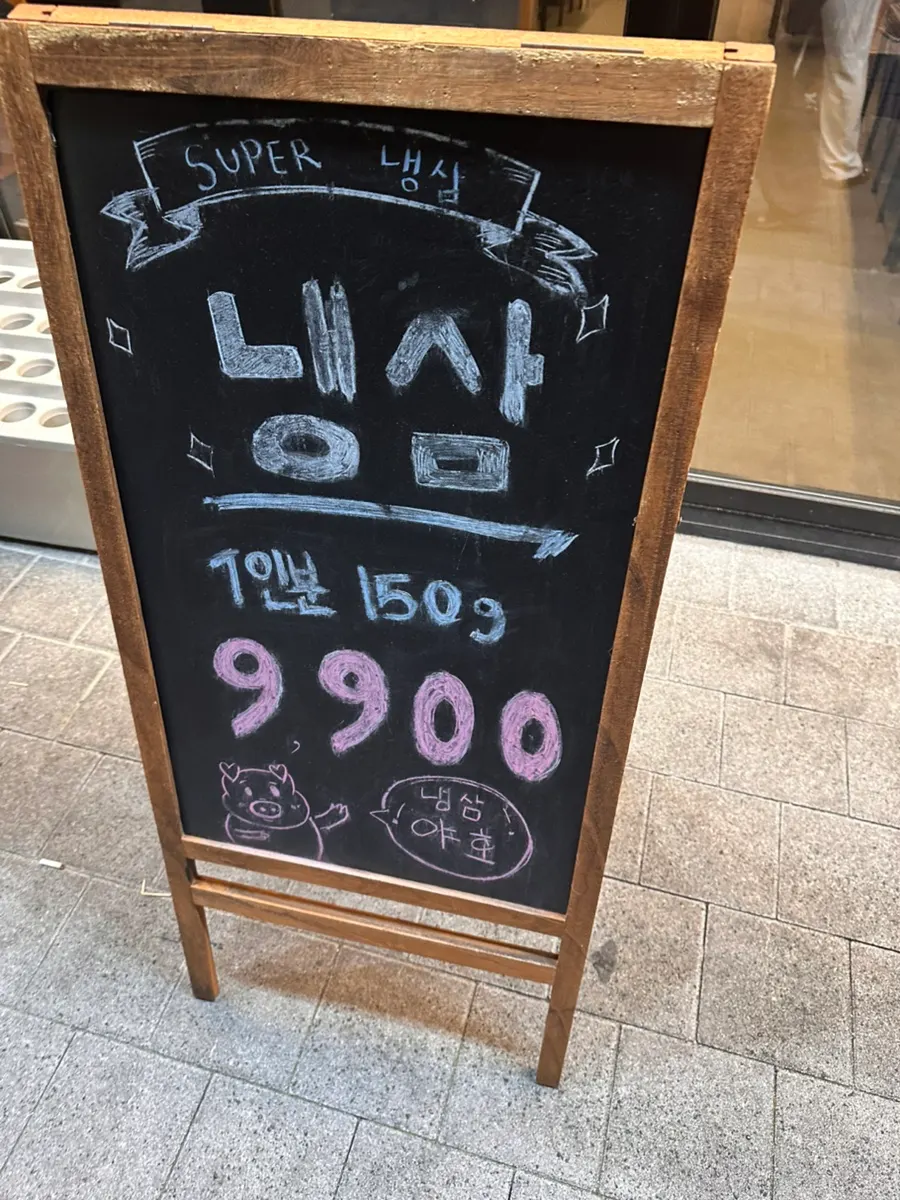 SUPER 냉삼
냉삼
1인분 150g
9,900
냉삼
야호